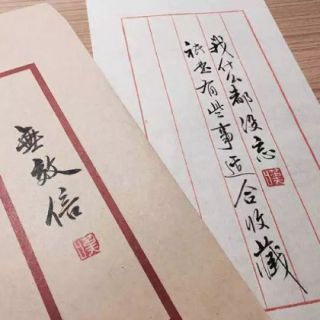 我什么都没忘
祇是有些事适合收藏
無效信